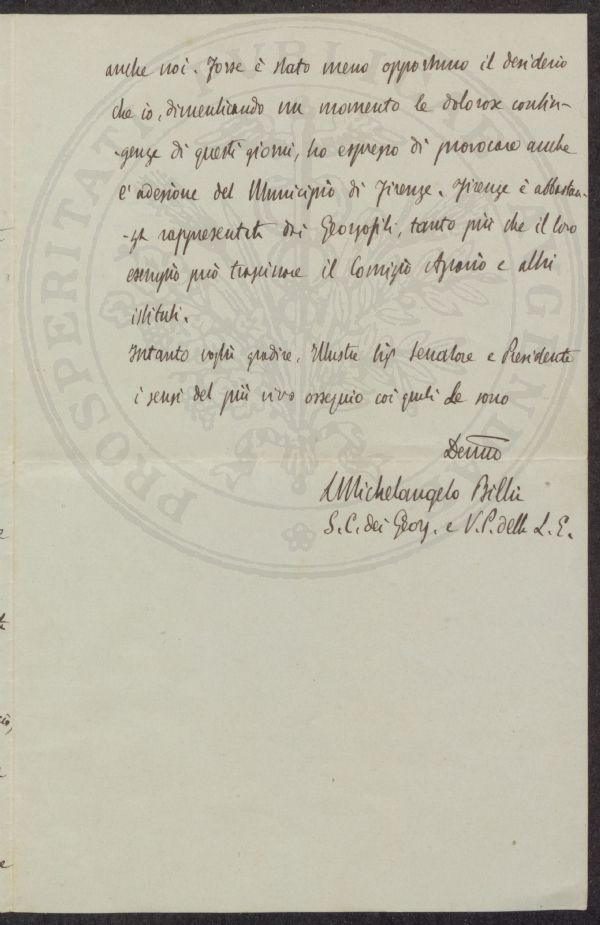 PROSPERITATI PUBLICAE
anche noi. Forse è stato meno opportuno il desiderio
che io, dimenticando un momento le dolorose contin-
-genze di questi giorni, ho espresso di provocare anche
l'adesione del Municipio di Firenze. Firenze è abbastan-
-za rappresentata dai Georgofili, tanto più che il loro
esempio può trascinare il Comizio Agrario e altri
istituti.
Intanto voglia gradire, Illustre Sig Senatore e Presidente
i sensi del più vivo ossequio coi quali Le sono
Devmo
Michelangelo Billi
S. C. dei Georg. e V. P. della L. E.